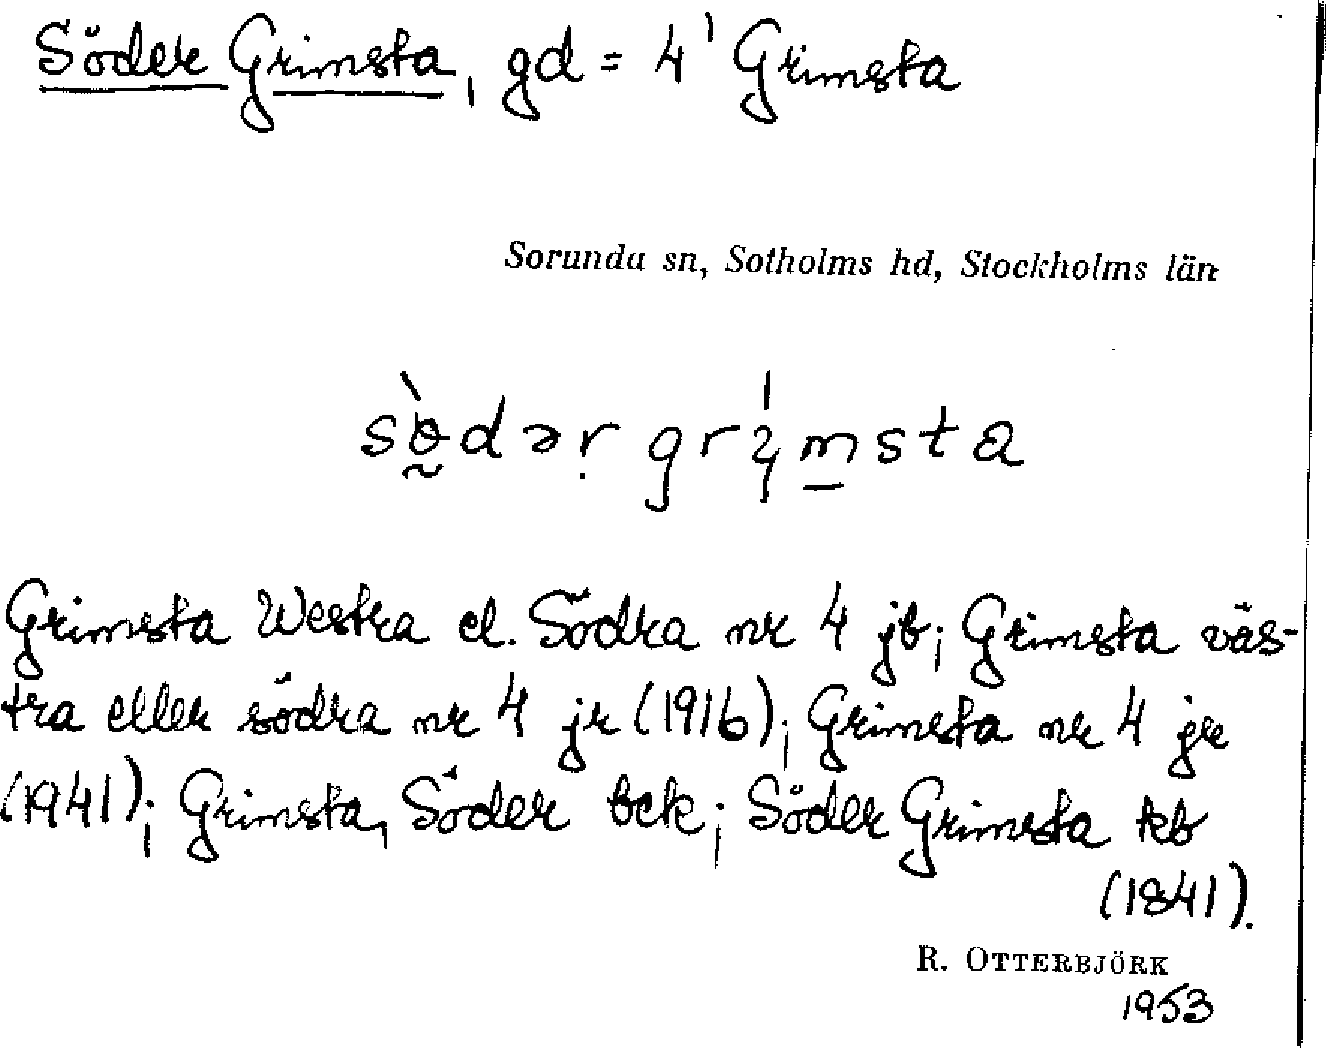 Söder Grimsta, gd = 4¹ Grimsta
Sorunda sn, Sotholms hd, Stockholms län
Grimsta Westra el. Södra nr 4 jb; Grimsta väs-
tra eller södra nr 4 jr (1916); Grimsta nr 4 jr
(1941); Grimsta, Söder bek; Söder Grimsta kb
(1841).
R. OTTERBJÖRK
1953